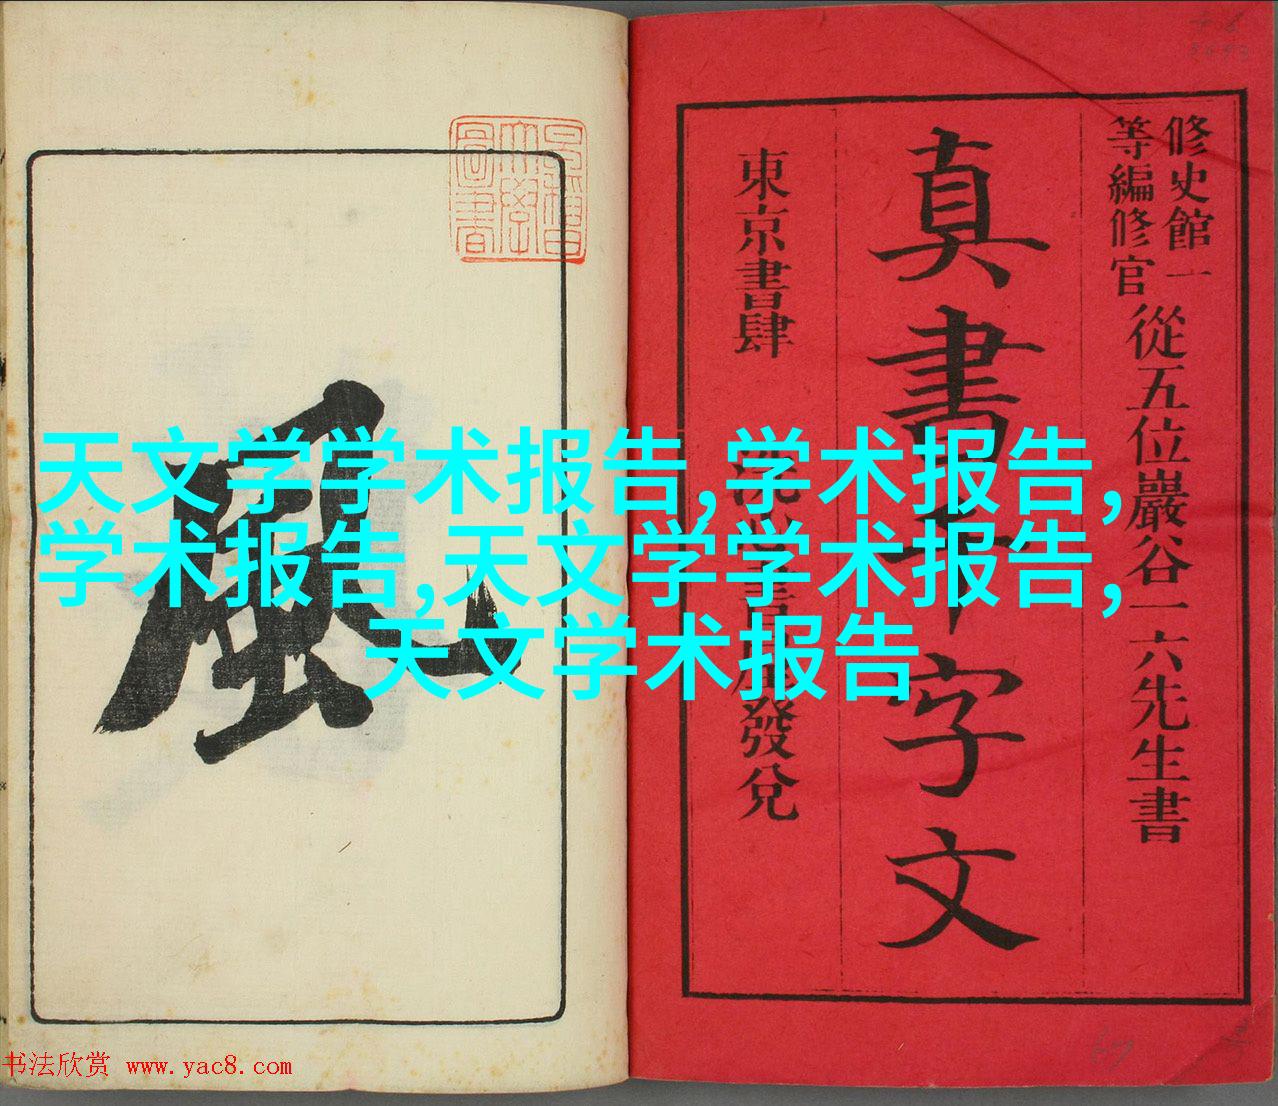 修史館一
等編修官
從五位巖谷一六先生書
真書千字文
東京書肆
發兌
風
天文学学术报告,学术报告,
学术报告,天文学学术报告,
天文学术报告
书法欣赏 www.yac8.com